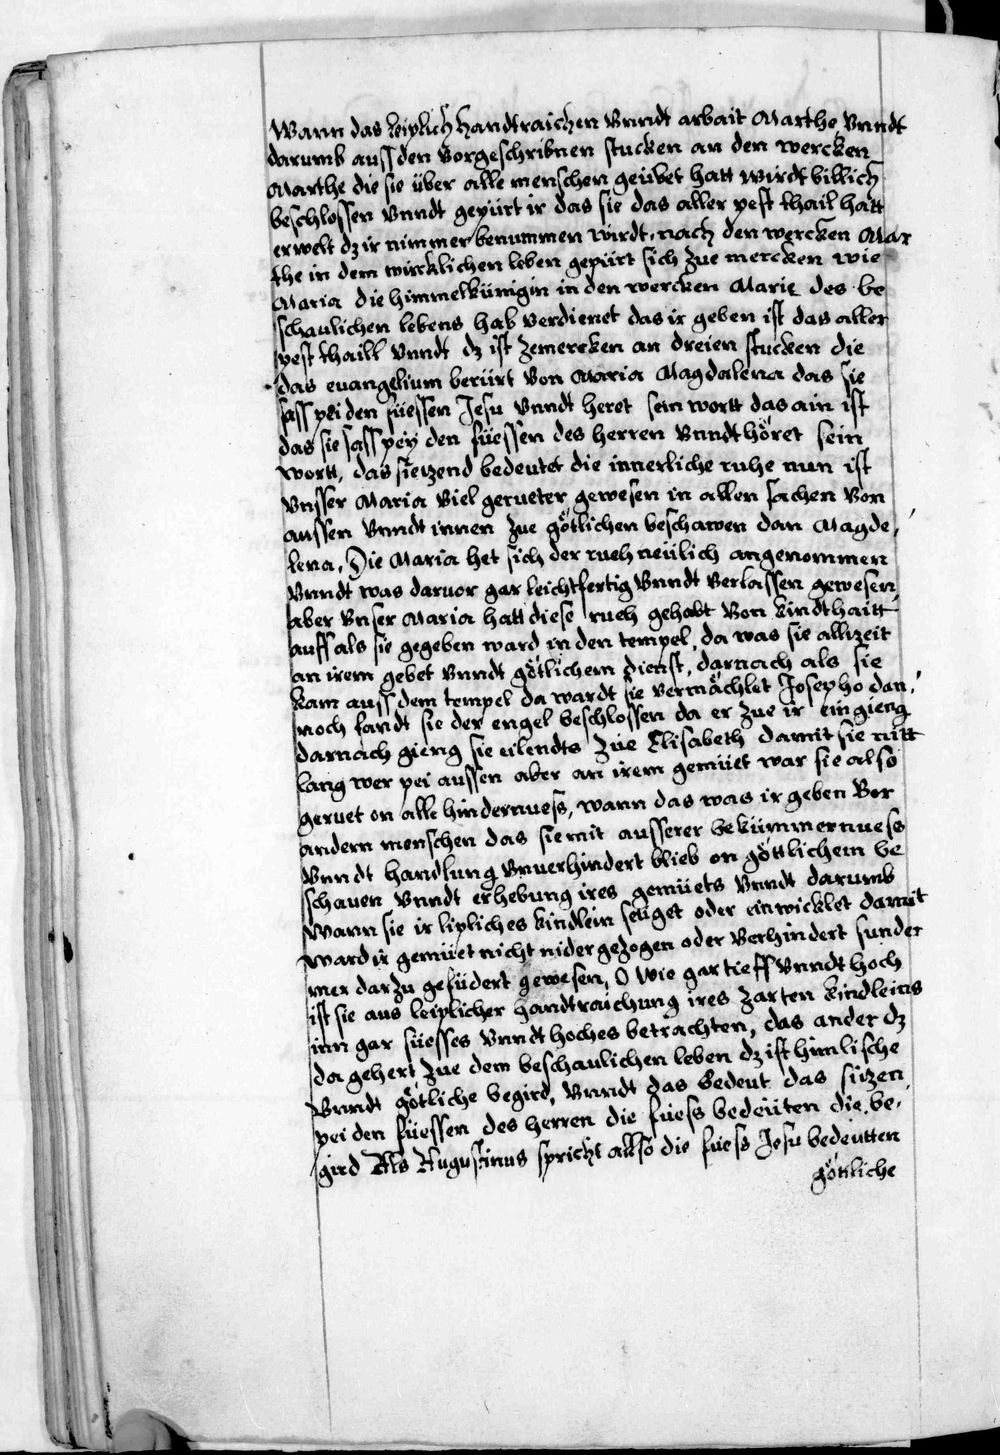 Wann das leiplich handtraichen vnndt arbait Marthe vnndt
darumb auss den vorgeschribnen stucken an den wercken
Marthe die sie über alle menschen geübet hatt wirdt billich
beschlossen vnndt gepürt ir das sie das aller pest thail hatt
erwelt dz ir nimmer benummen wirdt, nach den wercken Mar
the in dem wircklichen leben gepürt sich zue mercken wie
Maria die himmelkünigin in den wercken Marie des be
schaulichen lebens hab verdienet das ir geben ist das aller
pest thaill vnndt dz ist zemercken an dreien stucken die
das euangelium berürt von Maria Magdalena das sie
sass pei den füessen Jesu vnndt heret sein wortt das ain ist
das sie sass pey den füessen des herren vnndt höret sein
wortt, das sietzend bedeutet die innerliche ruhe nun ist
vnsser Maria viel gerueter gewesen in allen sachen von
aussen vnndt innen zue götlichen beschawen dan Magde,
lena, Die Maria het sich der rueh neülich angenommen
vnndt was daruor gar leichtfertig vnndt verlassen gewesen,
aber vnser Maria hatt diese rueh gehabt von kindthaitt
auff als sie gegeben ward in den tempel, da was sie allzeit
an irem gebet vnndt götlichem dienst, darnach als sie
kam auss dem tempel da wardt sie vermächlet Josepho dan,
noch fandt sie der engel beschlossen da er zue ir eingieng
darnach gieng sie eilendts zue Elisabeth damit sie nitt
lang wer pei aussen aber an irem gemüet war sie also
geruet on alle hindernuess, wann das was ir geben vor
andern menschen das sie mit ausserer bekümmernuess
vnndt handlung vnuerhindert blieb on göttlichem be
schauen vnndt erhebung ires gemüets vnndt darumb
Wann sie ir lipliches kindlein seüget oder einwicklet damit
ward ir gemüet nicht nider gezogen oder verhindert sunder
mer darzu gefüdert gewesen, O wie gar tieff vnndt hoch
ist sie aus leiplicher handtraichung ires zarten kindleins
inn gar süesses vnndt hoches betrachten, das ander dz
da gehert zue dem beschaulichen leben dz ist himlische
vnndt götliche begird, vnndt das bedeut das sitzen
pei den füessen des herren die füess bedeüten die be,
gird Als Augustinus spricht allso die füess Jesu bedeutten
göttliche